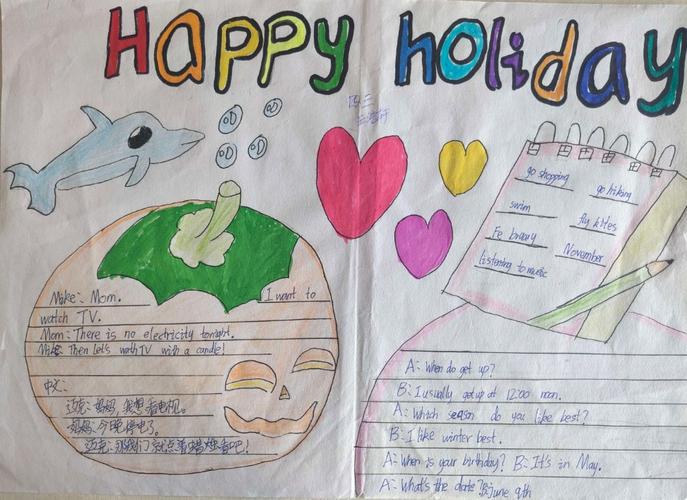 Happy holiday
四三
Make: Mom. I want to
watch TV.
Mom: There is no electricity tonight.
Make: Then Let's wathTV with a candle!
中文:
迈克:妈妈,我想看电机。
妈妈:今晚停电了。
迈克:那我们就点着蜡烛看吧!
go shopping
go hiking
swim
fly kites
Fe bruary
November
listening to music
A: When do get up?
B: I usually get up at 12:00 noon.
A: Which season do you like best?
B: I like winter best.
A: When is your birthday? B: It's in May.
A: What's the date? B: June 9th